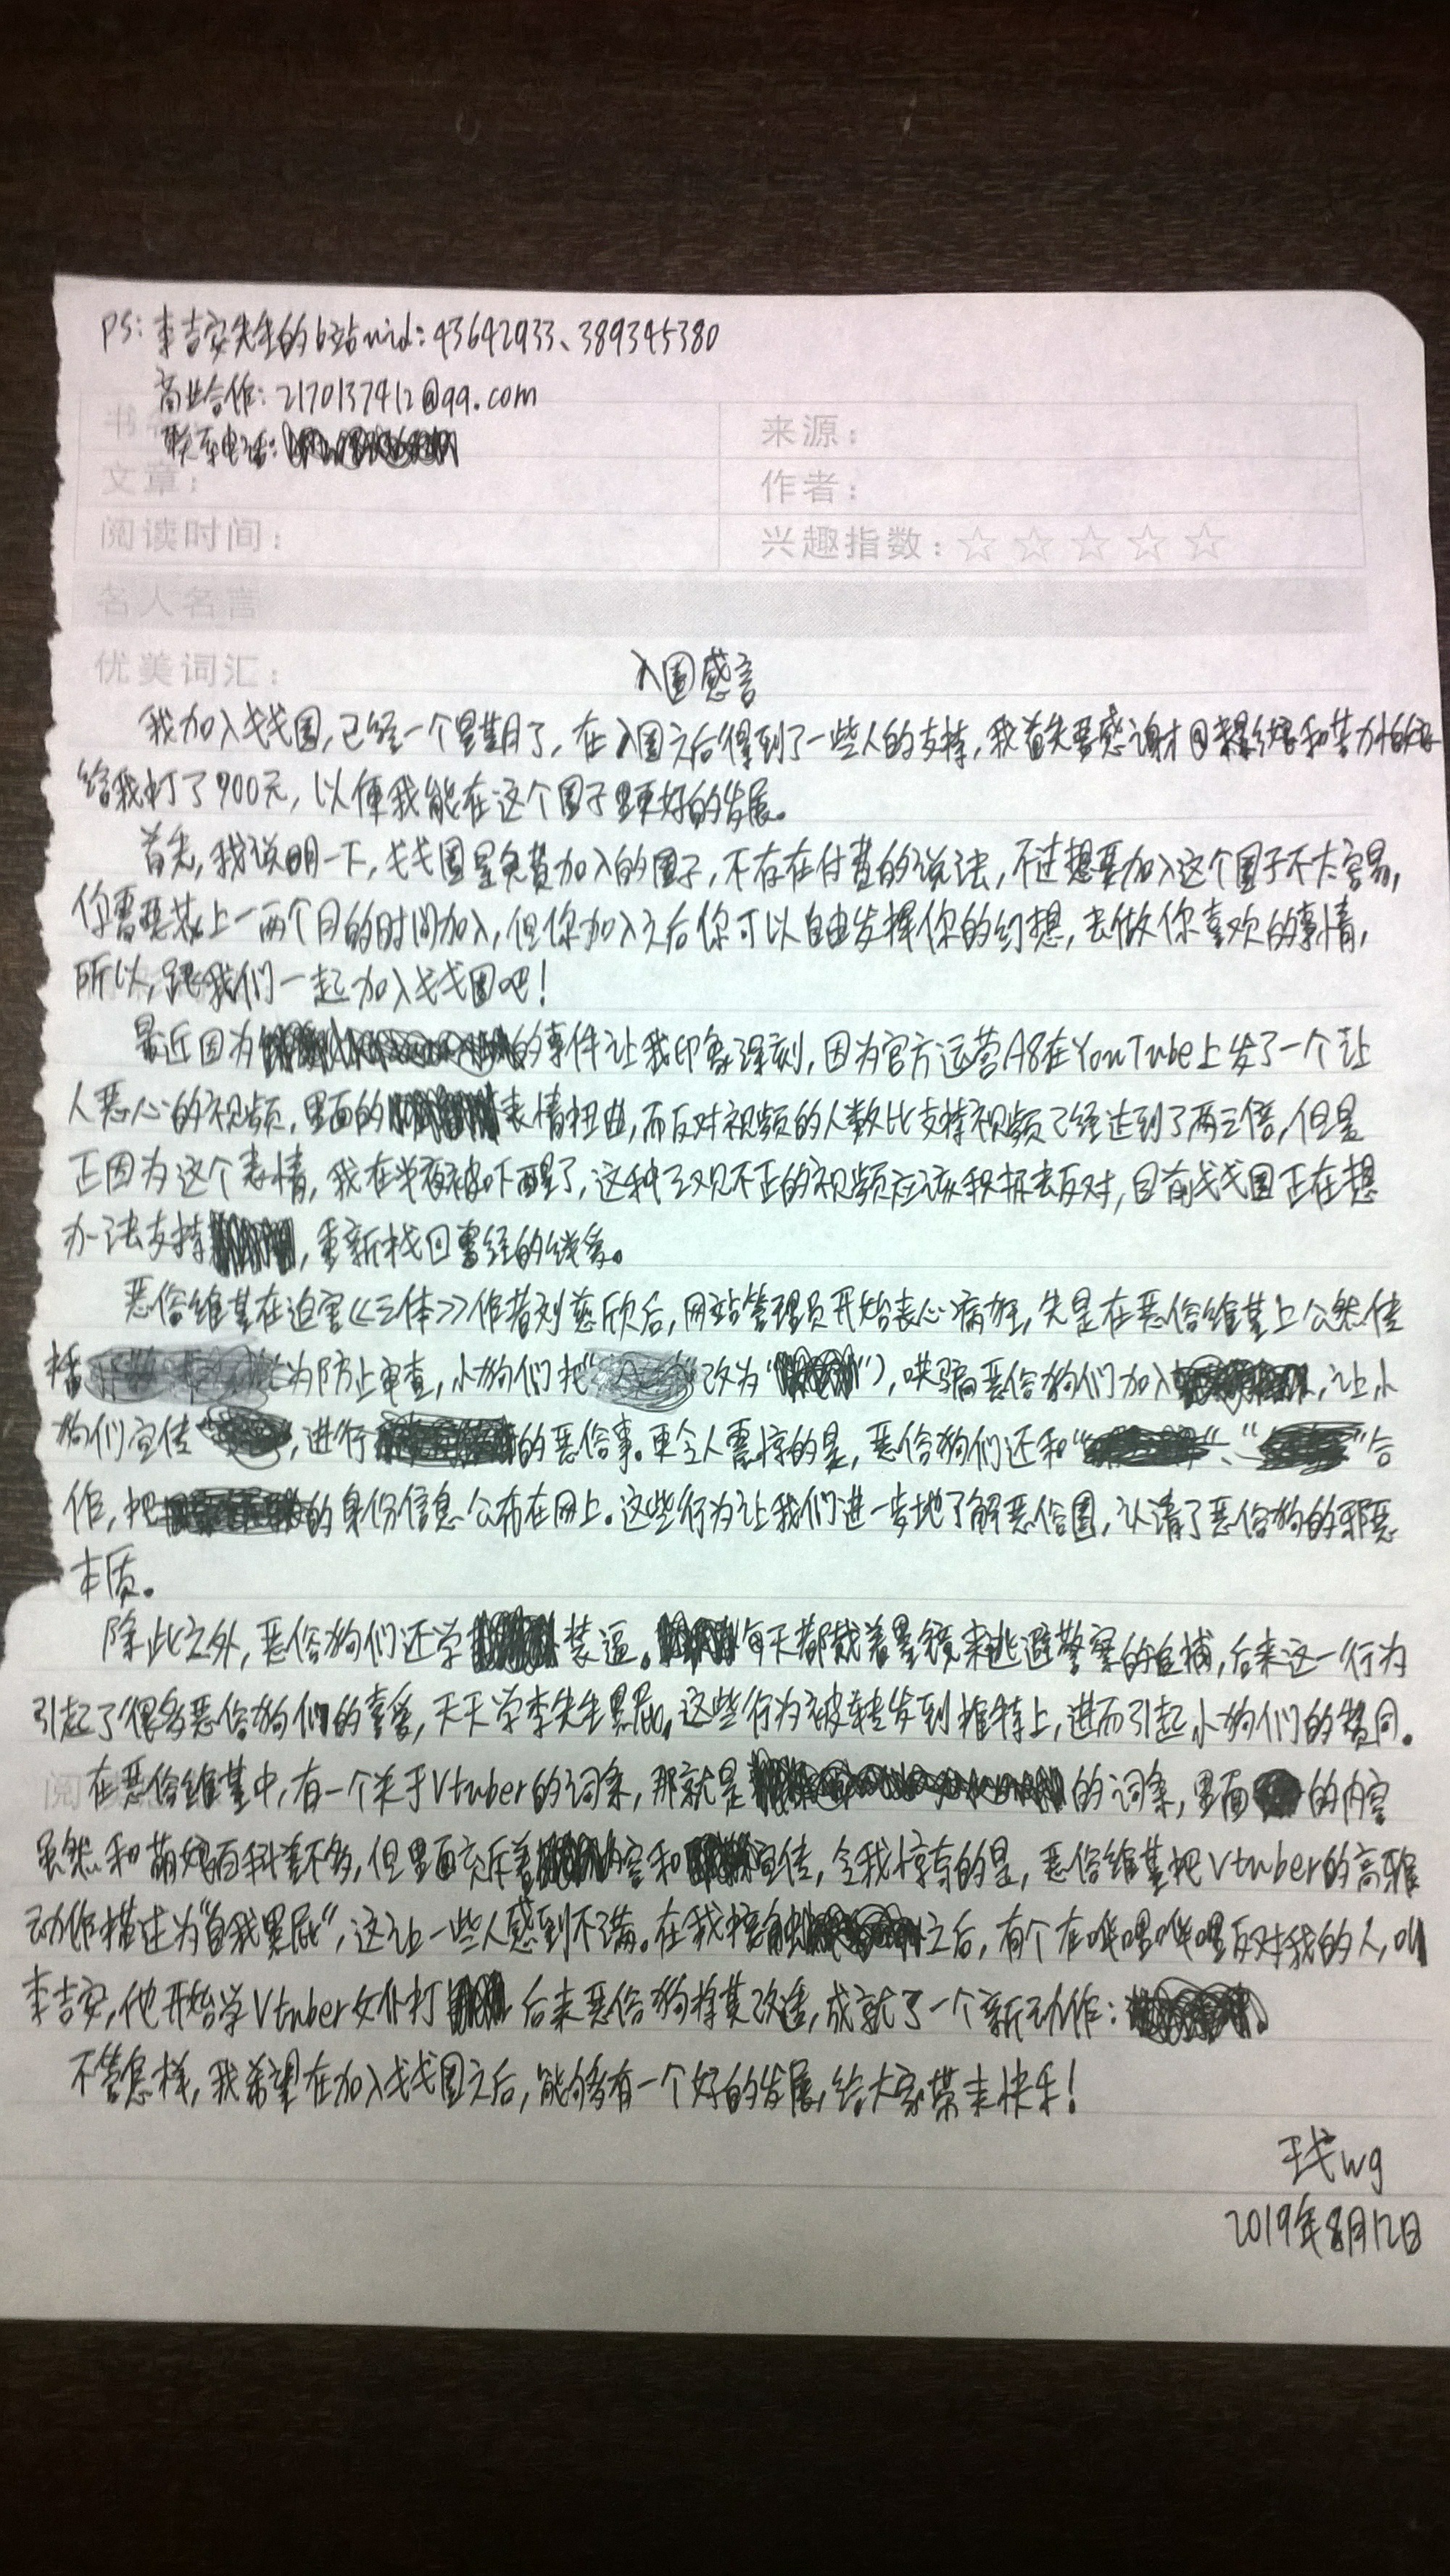 PS: 李吉安先生的b站uid: 43642933、389345380
商业合作: 2170137412@qq.com
联系电话:
来源:
文章:
作者:
阅读时间:
兴趣指数: ☆ ☆ ☆ ☆ ☆
名人名言
优美词汇:
入圈感言
我加入戈戈圈,已经一个星期了,在入圈之后得到了一些人的支持,我首先要感谢
给我打了900元,以便我能在这个圈子里更好的发展。
首先,我说明一下,戈戈圈是免费加入的圈子,不存在付费的说法,不过想要加入这个圈子不太容易,
你需要花上一两个月的时间加入,但你加入之后你可以自由发挥你的幻想,去做你喜欢的事情,
所以,跟我们一起加入戈戈圈吧!
最近因为 的事件让我印象深刻,因为官方运营A8在YouTube上发了一个让
人恶心的视频,里面的 表情扭曲,而反对视频的人数比支持视频已经达到了两三倍,但是
正因为这个表情,我在半夜被吓醒了,这种三观不正的视频应该积极去反对,目前戈戈圈正在想
办法支持 ,重新找回曾经的线条。
恶俗维基在迫害《三体》作者刘慈欣后,网站管理员开始丧心病狂,先是在恶俗维基上公然传
播 为防止审查,小狗们把“ ”改为“ ”),哄骗恶俗狗们加入 ,让小
狗们宣传 ,进行 的恶俗事。更令人震惊的是,恶俗狗们还和“ ”、“ ”合
作,把 的身份信息公布在网上。这些行为让我们进一步地了解恶俗圈,认清了恶俗狗的邪恶
本质。
除此之外,恶俗狗们还学 装逼。 每天都戴着墨镜来逃避警察的追捕,后来这一行为
引起了很多恶俗狗们的喜爱,天天学李先生累屁。这些行为被转发到推特上,进而引起小狗们的赞同。
在恶俗维基中,有一个关于Vtuber的词条,那就是 的词条,里面 的内容
虽然和萌娘百科差不多,但里面充斥着 内容和 宣传,令我惊奇的是,恶俗维基把Vtuber的高雅
动作描述为“自我累屁”,这让一些人感到不满。在我接触 之后,有个在哔哩哔哩反对我的人,叫
李吉安,他开始学Vtuber女仆打 后来恶俗狗将其改造,成就了一个新动作:
不管怎样,我希望在加入戈戈圈之后,能够有一个好的发展,给大家带来快乐!
王戈wg
2019年8月12日